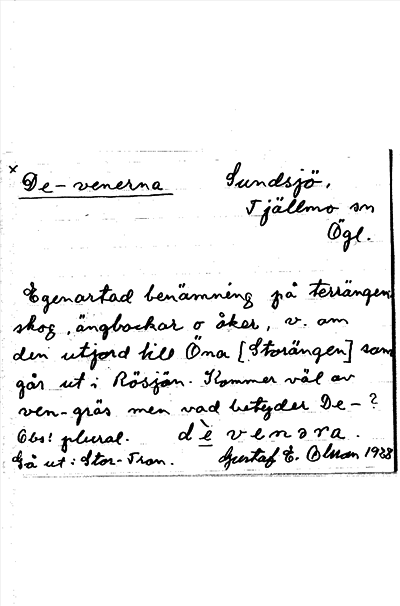 x
De-venerna
Sundsjö,
Tjällmo sn
Ögl.
Egenartad benämning på terrängen
skog, ängbackar o åker, v. om
den utjord till Öna [Storängen] som
går ut i Rösjön. Kommer väl av
ven-gräs men vad betyder De-?
Obs! plural. dè venəra.
Gå ut i Stor-Tron. Gustaf E. Olsson 1938